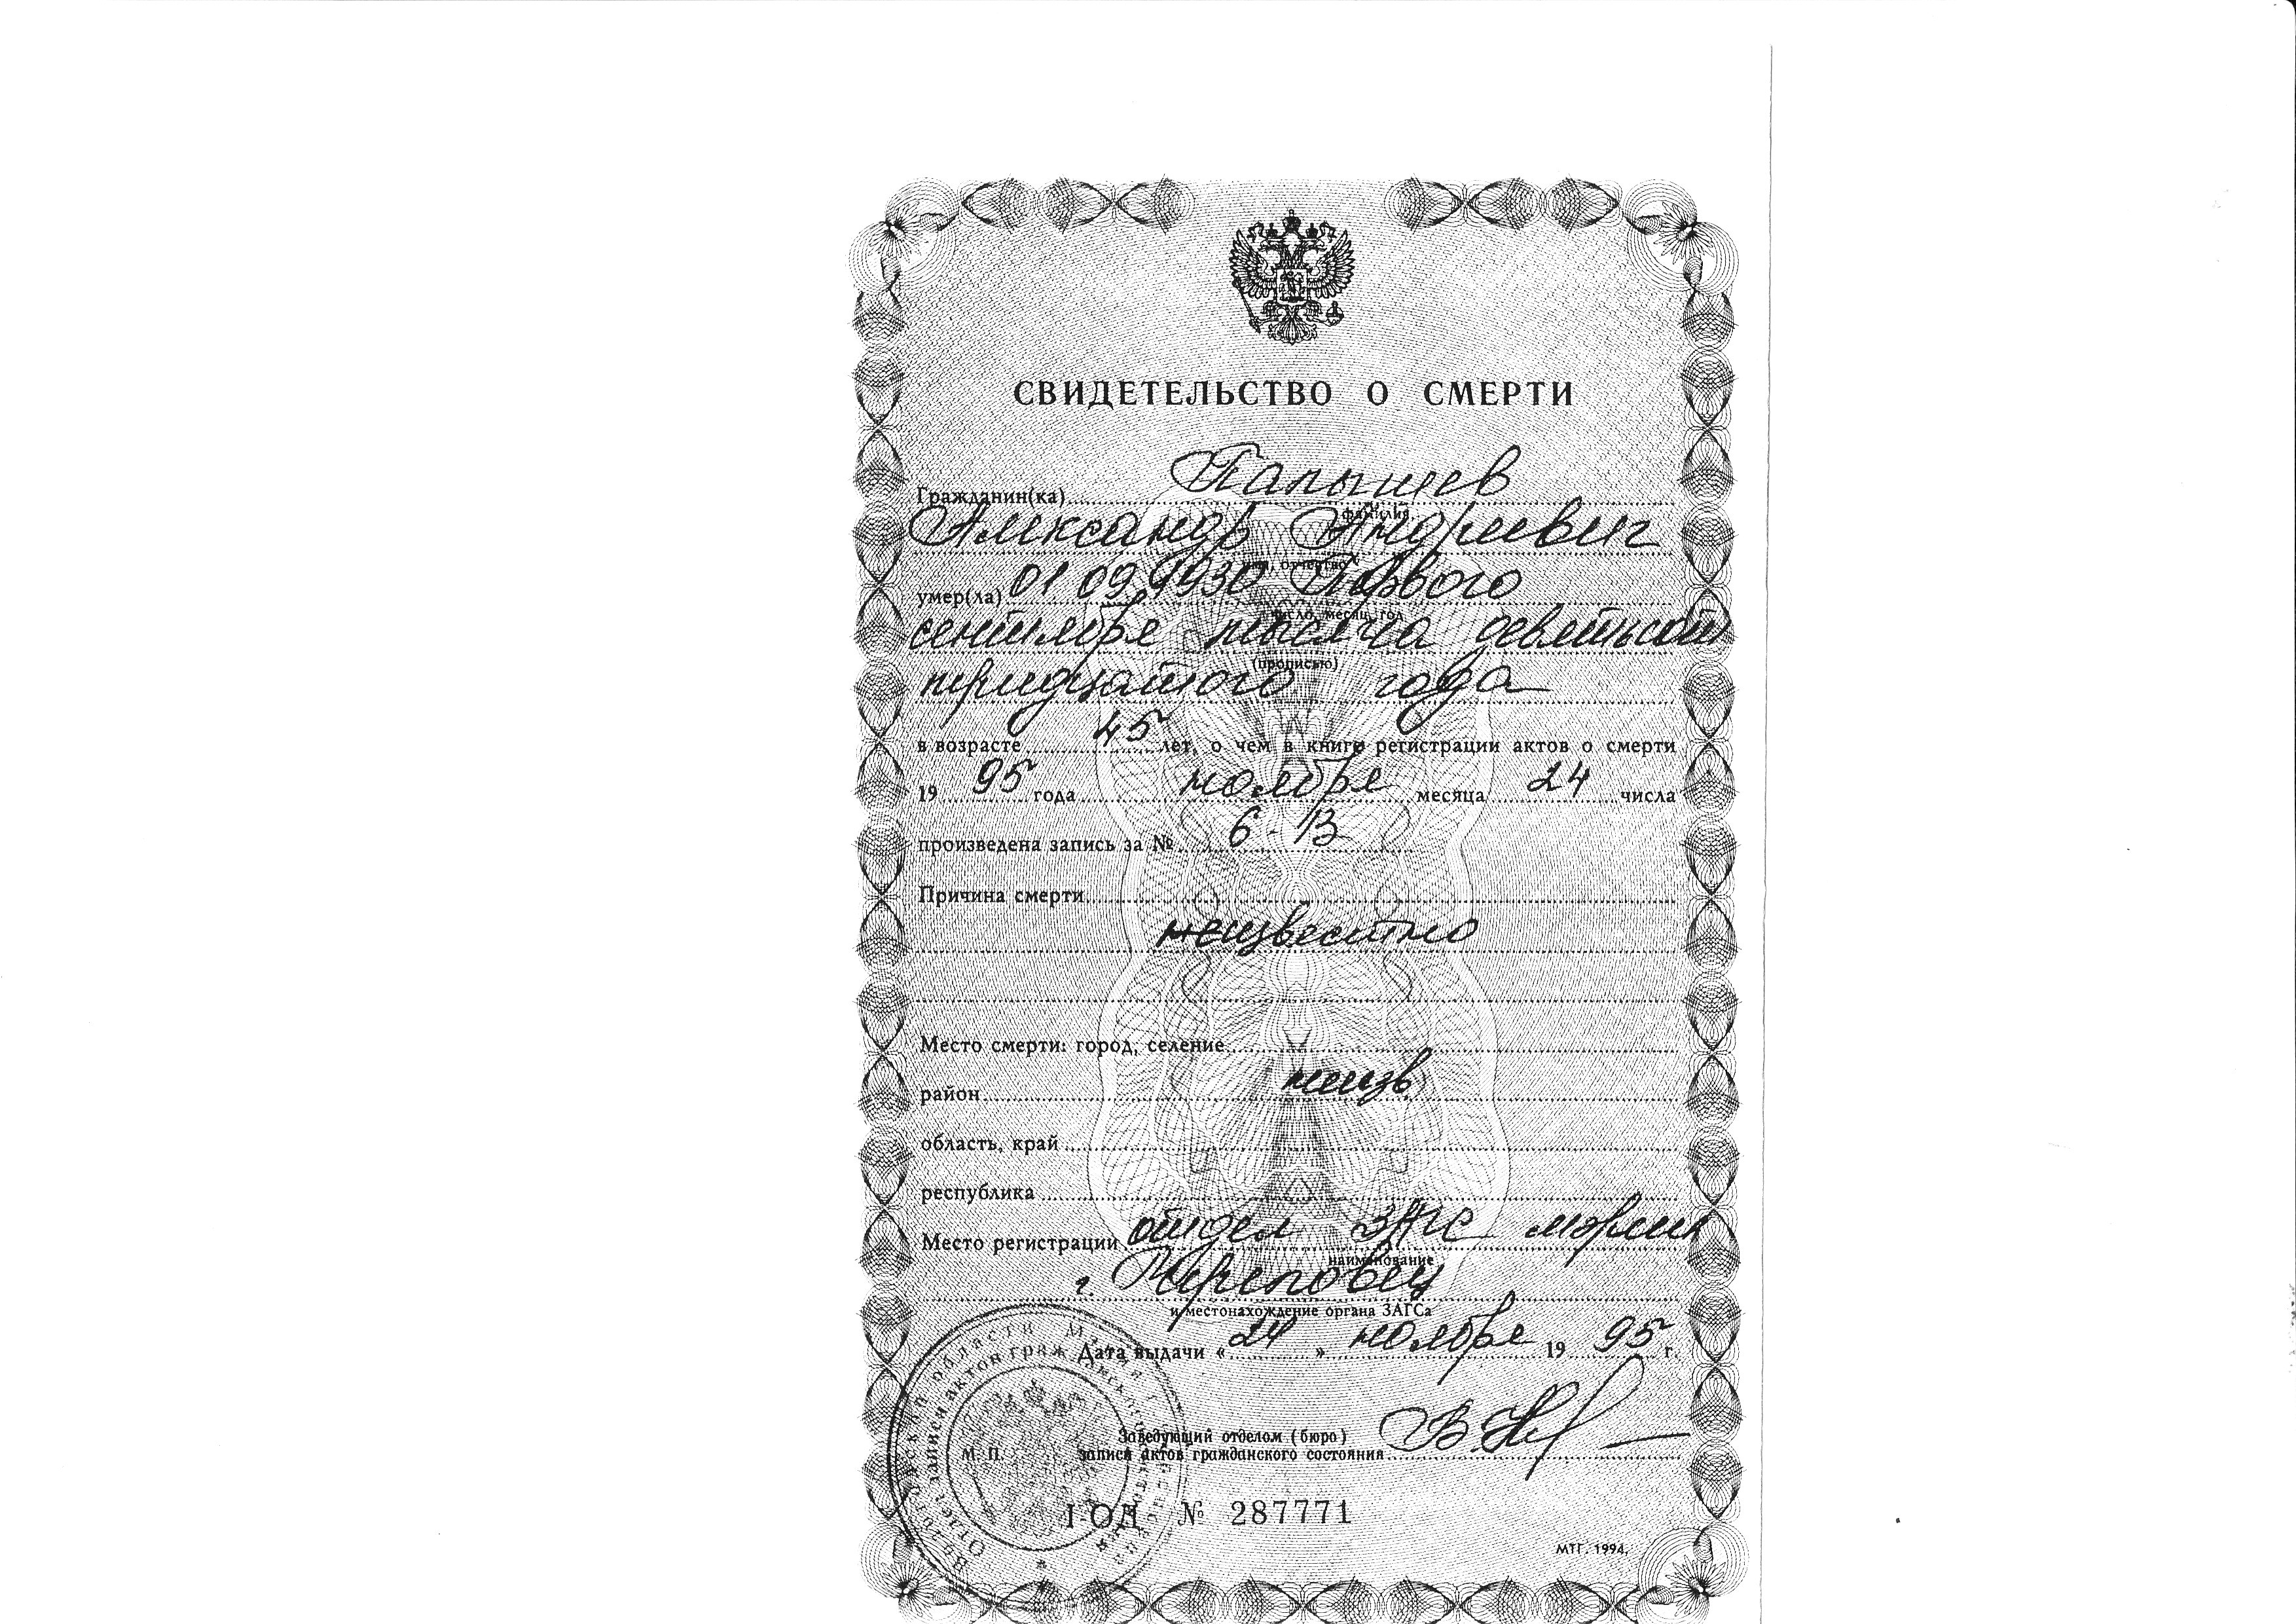 СВИДЕТЕЛЬСТВО О СМЕРТИ
Гражданин(ка) Папышев
фамилия
Александр Андреевич
имя, отчество
умер(ла) 01 09 1930 Первого
число, месяц, год
сентября тысяча девятьсот
(прописью)
тридцатого года
в возрасте 45 лет, о чем в книге регистрации актов о смерти
19 95 года ноября месяца 24 числа
произведена запись за № 6-В
Причина смерти
неизвестно
Место смерти: город, селение
район неизв.
область, край
республика
Место регистрации отдел ЗАГС мэрии
наименование
г. Череповец
и местонахождение органа ЗАГСа
Дата выдачи « 24 » ноября 19 95 г.
Заведующий отделом (бюро)
М. П. записи актов гражданского состояния
I-ОД № 287771
МТГ. 1994.